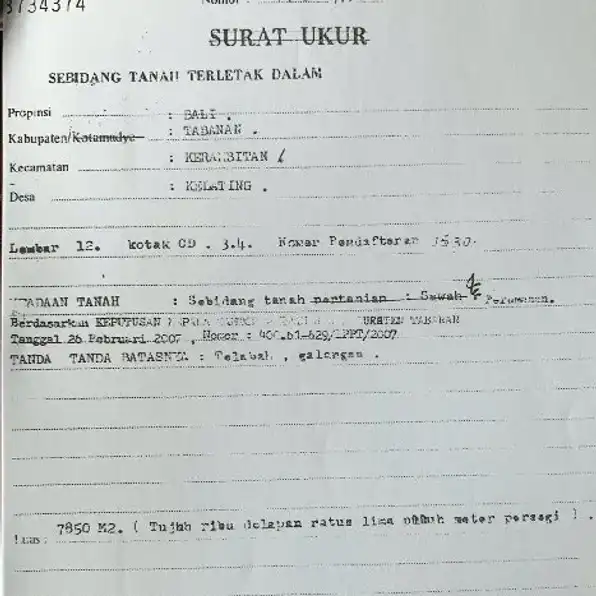 3734374
Nomor :
SURAT UKUR
SEBIDANG TANAH TERLETAK DALAM
Propinsi : BALI .
Kabupaten/Kotamadya : TABANAN .
Kecamatan : KERAMBITAN /
Desa : KELATING .
Lembar 12. kotak CD . 3.4. Nomor Pendaftaran 1530.
KEADAAN TANAH : Sebidang tanah pertanian : Sawah Perumahan.
Berdasarkan KEPUTUSAN TABANAN
Tanggal 26 Pebruari 2007 , Nomor :
TANDA TANDA BATASNYA : Telabah , galengan .
Luas : 7850 M2. ( Tujuh ribu delapan ratus lima puluh meter persegi ) .